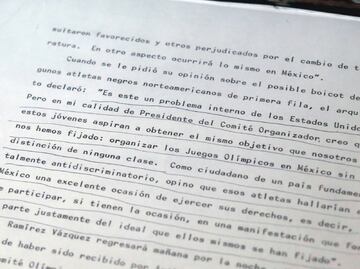 sultaron favorecidos y otros perjudicados por el cambio de t
ratura. En otro aspecto ocurrirá lo mismo en México".
Cuando se le pidió su opinión sobre el posible boicot de
gunos atletas negros norteamericanos de primera fila, el arqu
to declaró: "Es este un problema interno de los Estados Unid
Pero en mi calidad de Presidente del Comité Organizador, creo q
estos jóvenes aspiran a obtener el mismo objetivo que nosotros
nos hemos fijado: organizar los Juegos Olímpicos en México sin
distinción de ninguna clase. Como ciudadano de un país fundame
talmente antidiscriminatorio, opino que esos atletas hallarían
México una excelente ocasión de ejercer sus derechos, es decir,
e participar, si tienen la ocasión, en una manifestación que fo
parte justamente del ideal que ellos mismos se han fijado".
Ramírez Vázquez regresará mañana por la noche
de haber sido recibido por
mité Olím